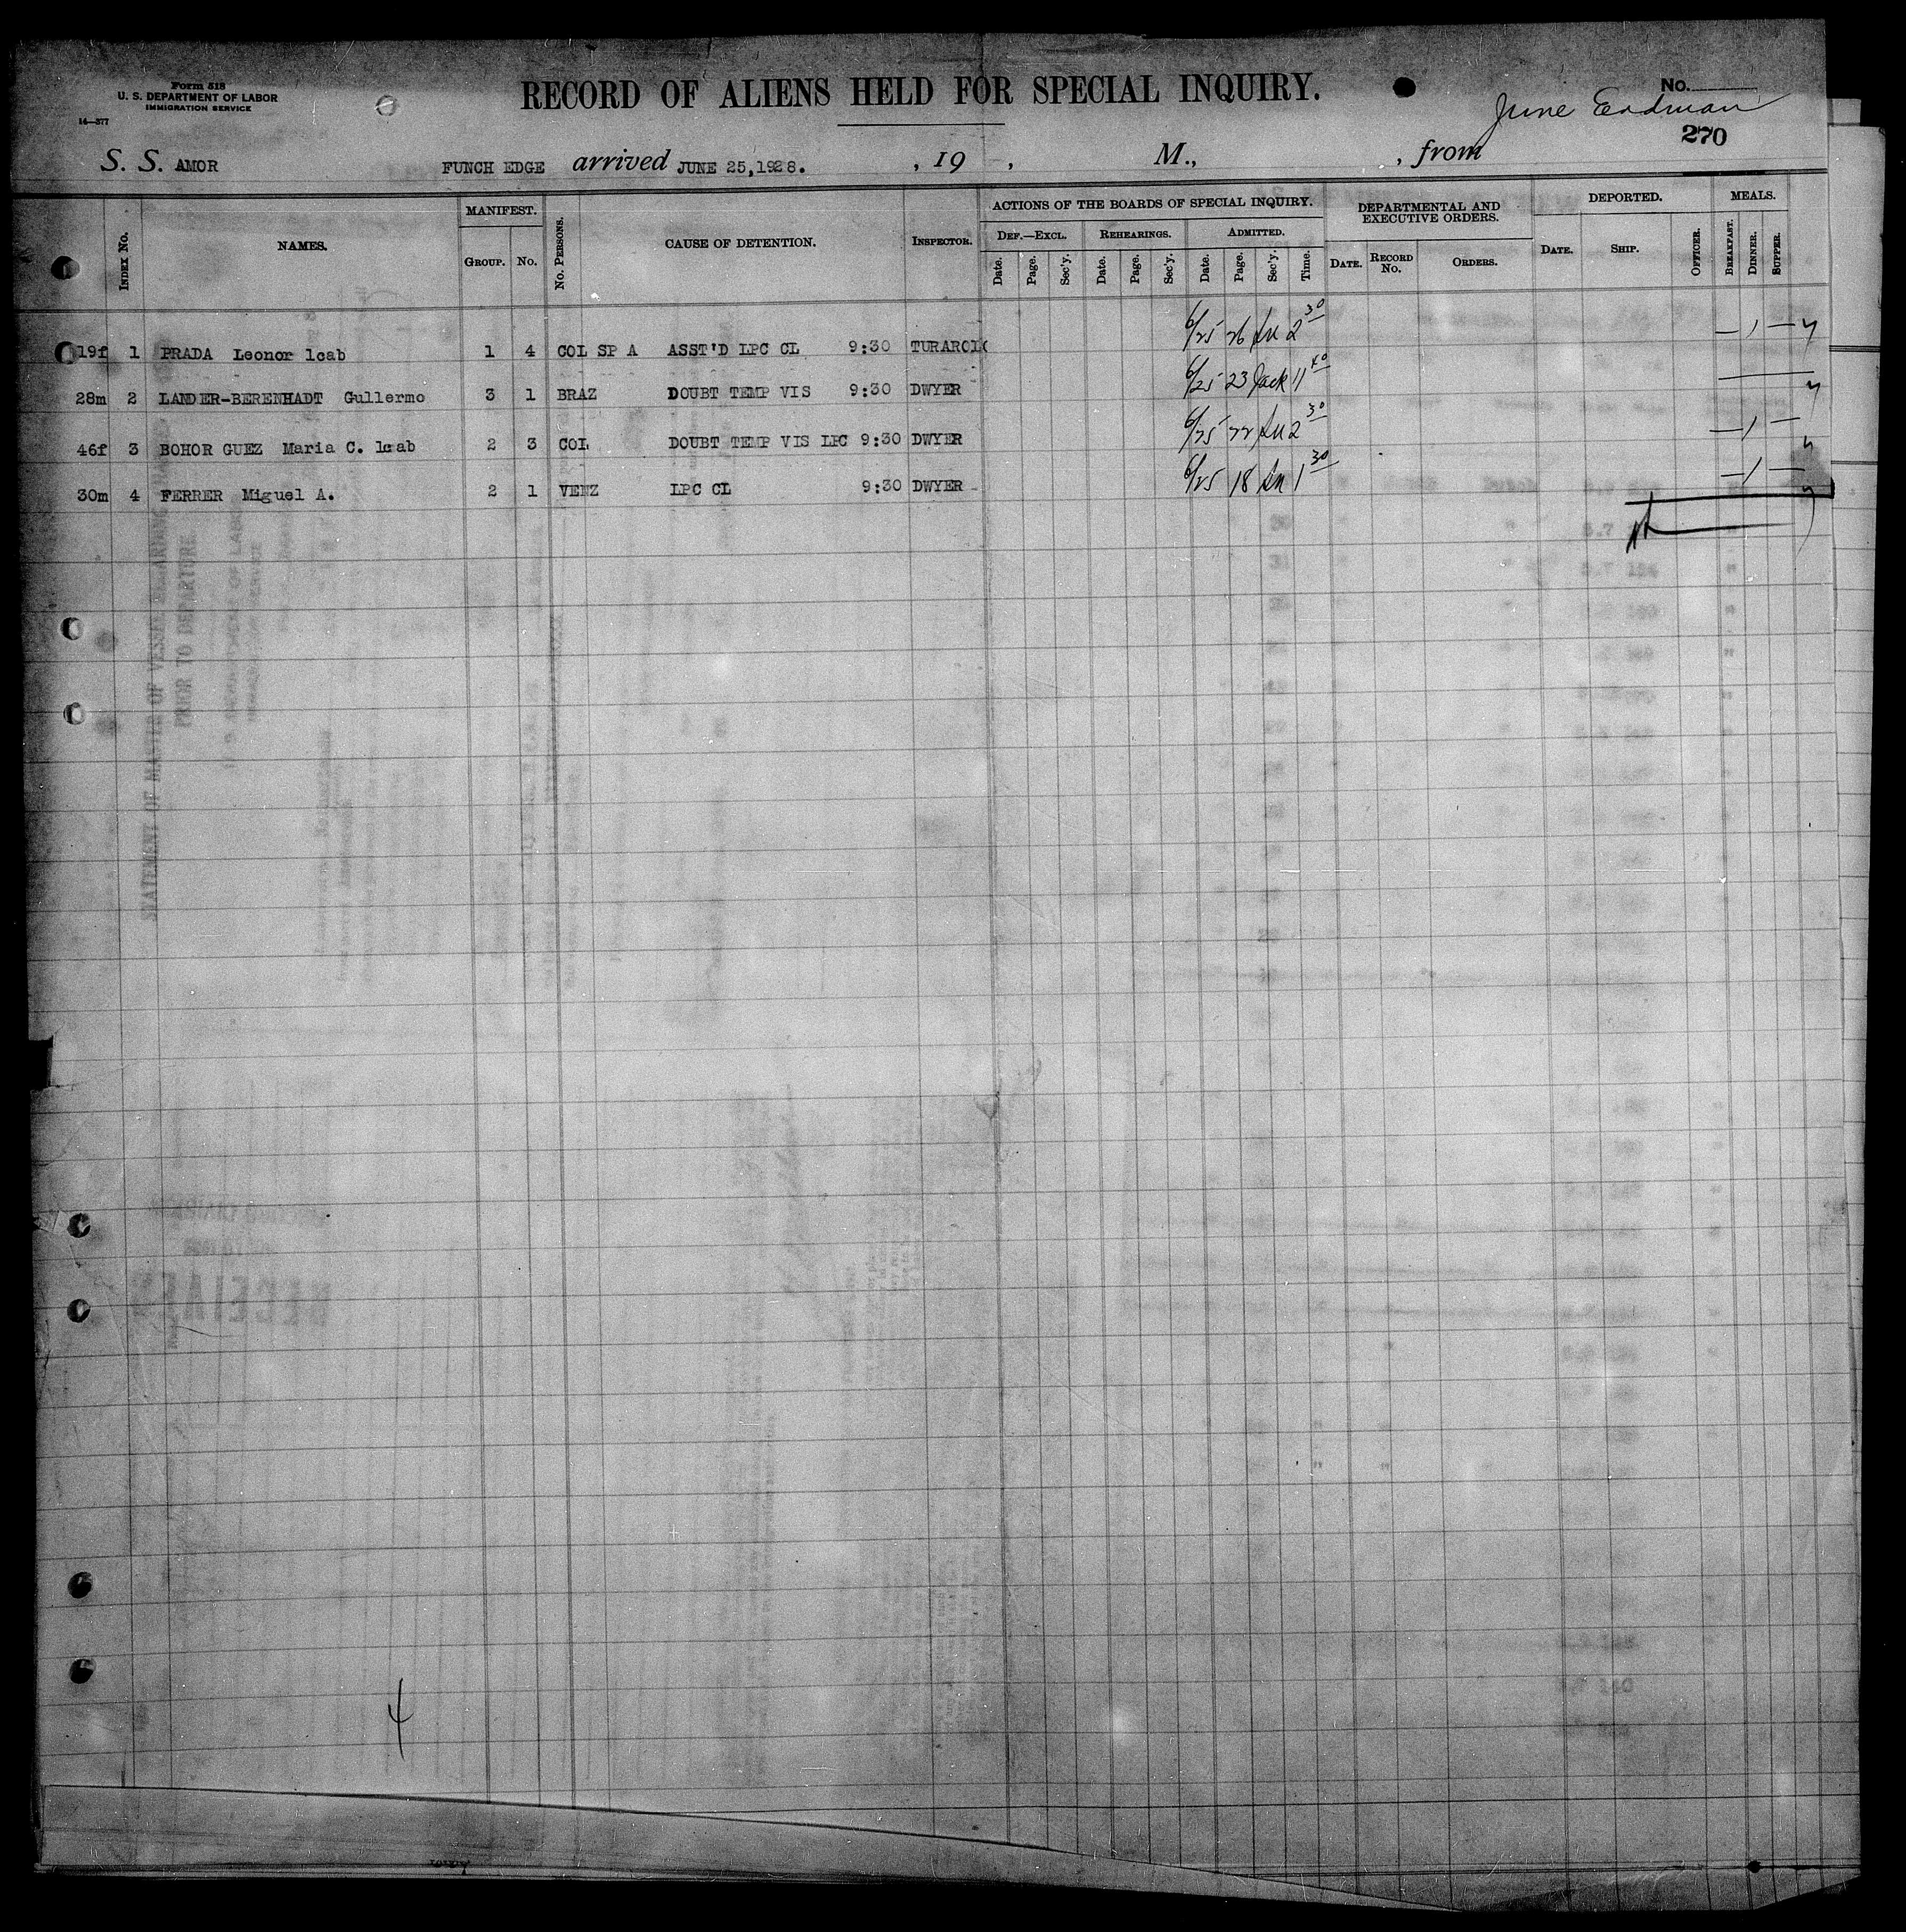 Form 518
U. S. DEPARTMENT OF LABOR
IMMIGRATION SERVICE
14—377
RECORD OF ALIENS HELD FOR SPECIAL INQUIRY.
No.
June
270
S. S. AMOR FUNCH EDGE arrived JUNE 25,1928. , 19 , M., , from
INDEX No. NAMES. MANIFEST. GROUP. No. No. PERSONS. CAUSE OF DETENTION. INSPECTOR. ACTIONS OF THE BOARDS OF SPECIAL INQUIRY. DEF.—EXCL. Date. Page. Sec'y. REHEARINGS. Date. Page. Sec'y. ADMITTED. Date. Page. Sec'y. Time. DEPARTMENTAL AND EXECUTIVE ORDERS. DATE. RECORD No. ORDERS. DEPORTED. DATE. SHIP. OFFICER. MEALS. BREAKFAST. DINNER. SUPPER.
19f 1 PRADA Leonor 1cab 1 4 COL SP A ASST'D LPC CL 9:30 6/25 26 2 30 — 1 —
28m 2 LANDER-BERENHADT Gullermo 3 1 BRAZ DOUBT TEMP VIS 9:30 DWYER 6/25 23 Jack 11 40
46f 3 BOHOR GUEZ Maria C. 1cab 2 3 COL DOUBT TEMP VIS LPC 9:30 DWYER 6/25 22 2 30 — 1 —
30m 4 FERRER Miguel A. 2 1 VENZ LPC CL 9:30 DWYER 6/25 18 1 30 — 1 —
4